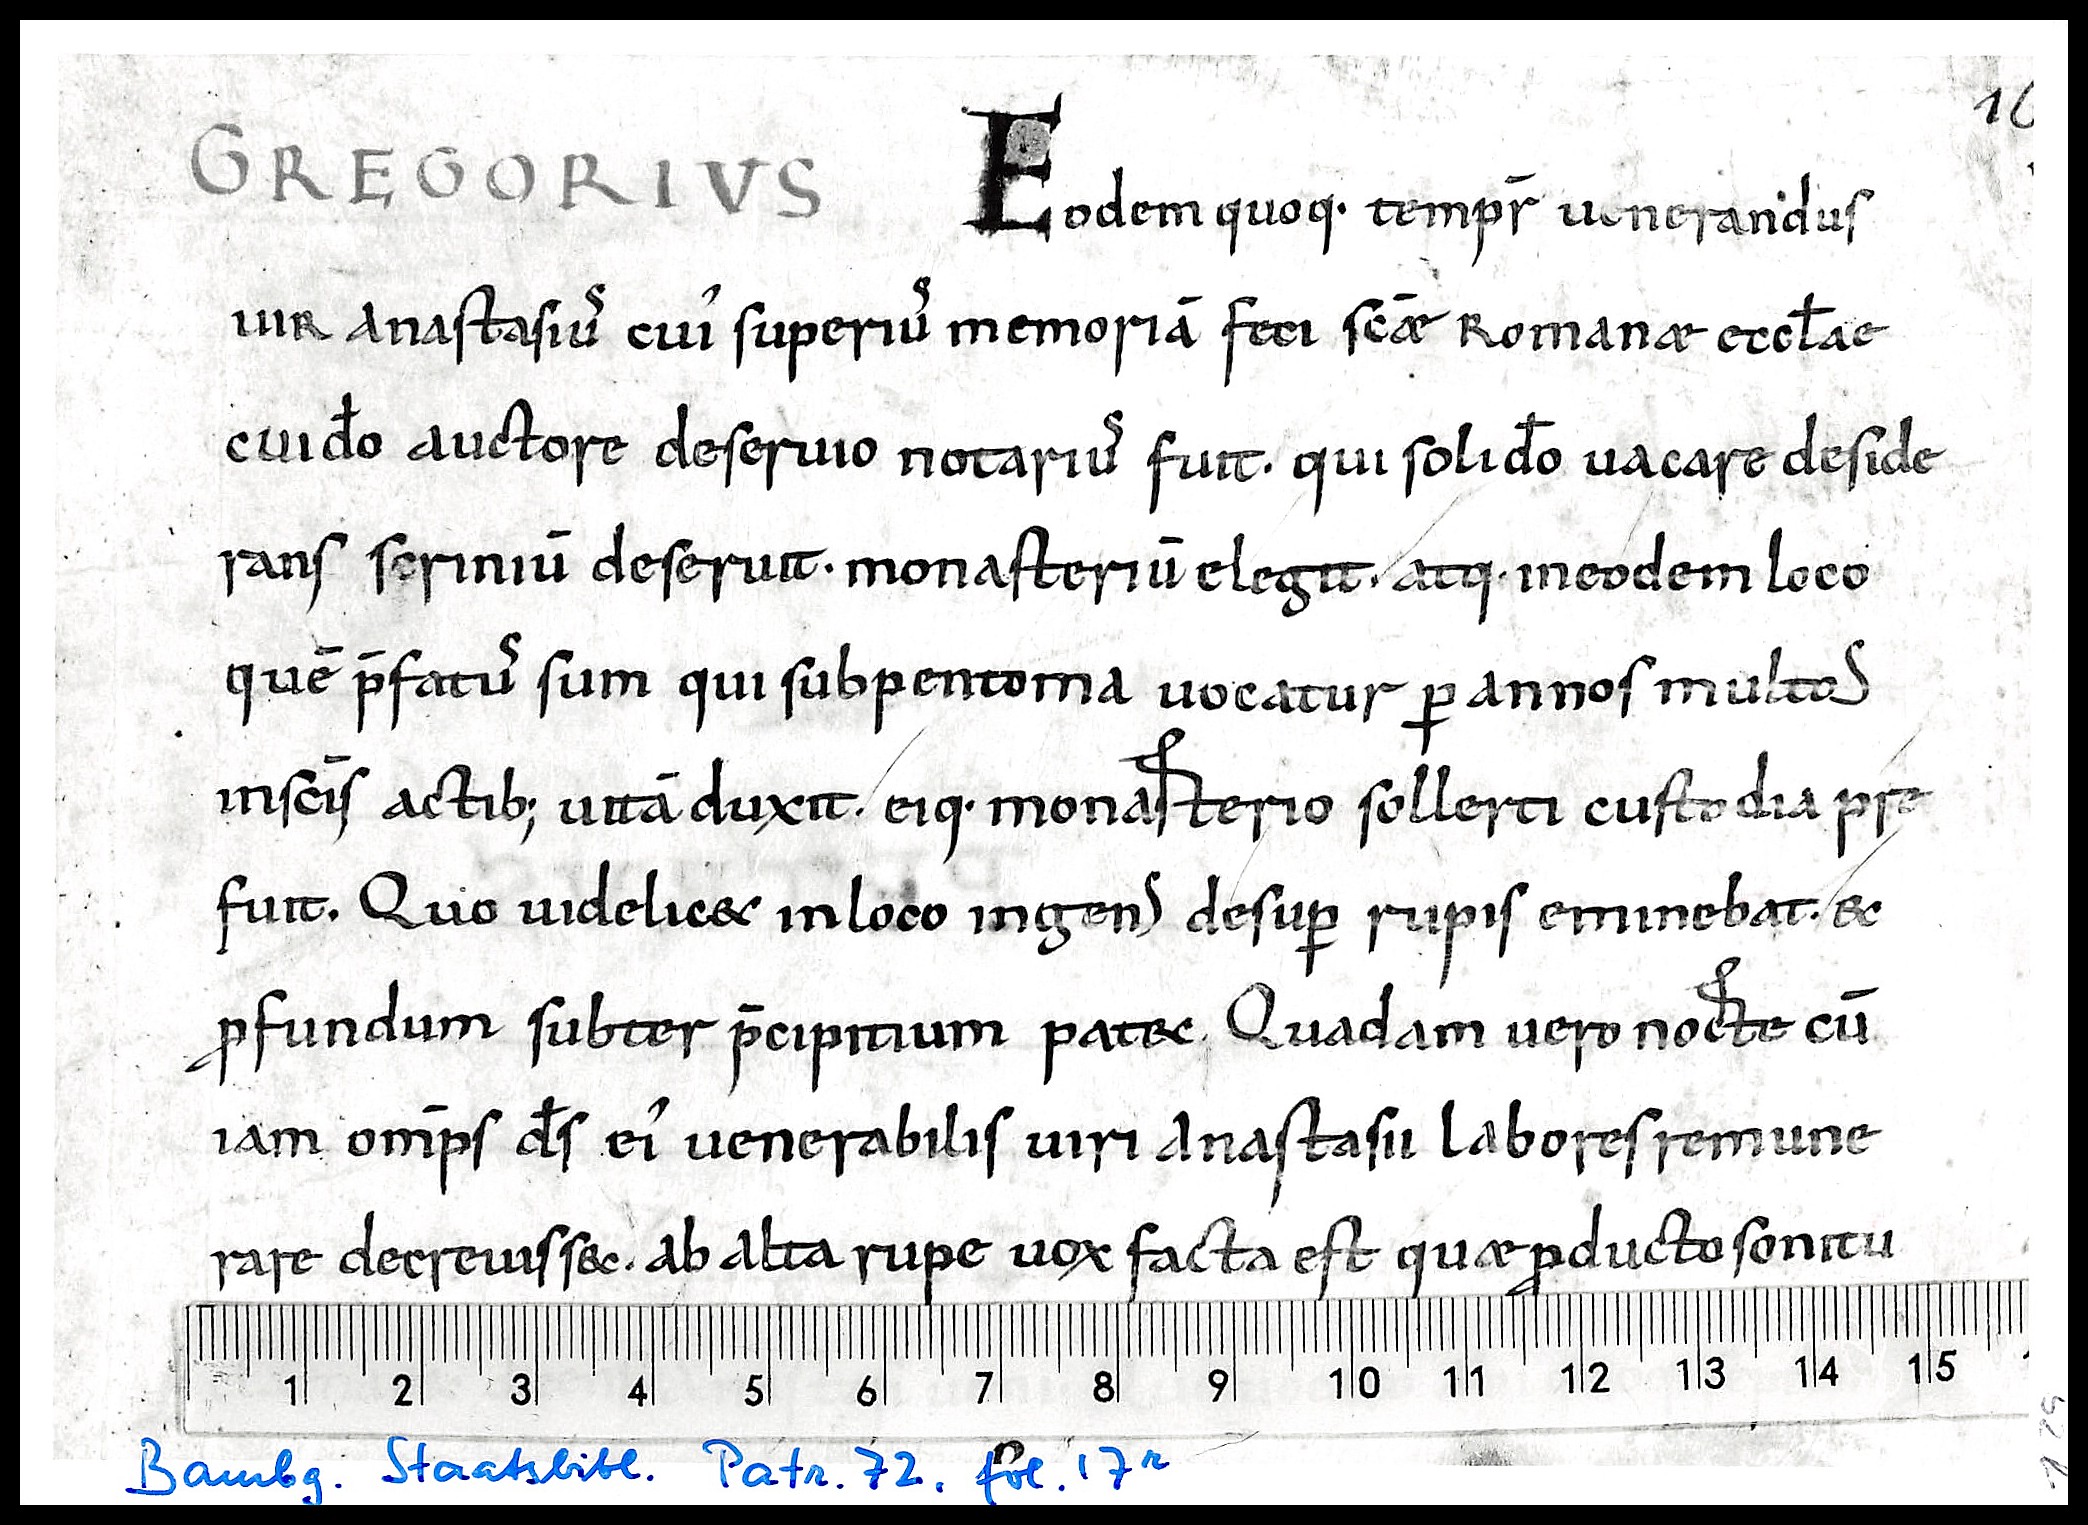 GREGORIVS Eodem quoq· tempr̄ uenerandus
uir anastasiuˢ cui superiuˢ memoriā feci scǣ Romanæ eccłae
cui dō auctore deseruio notariuˢ fuit· qui soli dō uacare deside
rans scriniū deseruit· monasteriū elegit· atq· in eodem loco
quē p̄fatuˢ sum qui subpentoma uocatur ꝑ annos multos
in sc̄is actib; uitā duxit· eiq· monasterio sollerti custodia pre
fuit. Quo uidelic& in loco ingens desuꝑ rupis eminebat· &
ꝓfundum subter p̄cipitium pat&. Quadam uero nocte cū
iam om̄ps ds̄ ei uenerabilis uiri anastasii labores remune
rare decreuiss&. ab alta rupe uox facta est quæ ꝓducto sonitu
1 2 3 4 5 6 7 8 9 10 11 12 13 14 15
Bambg. Staatsbibl. Patr. 72, fol. 17r